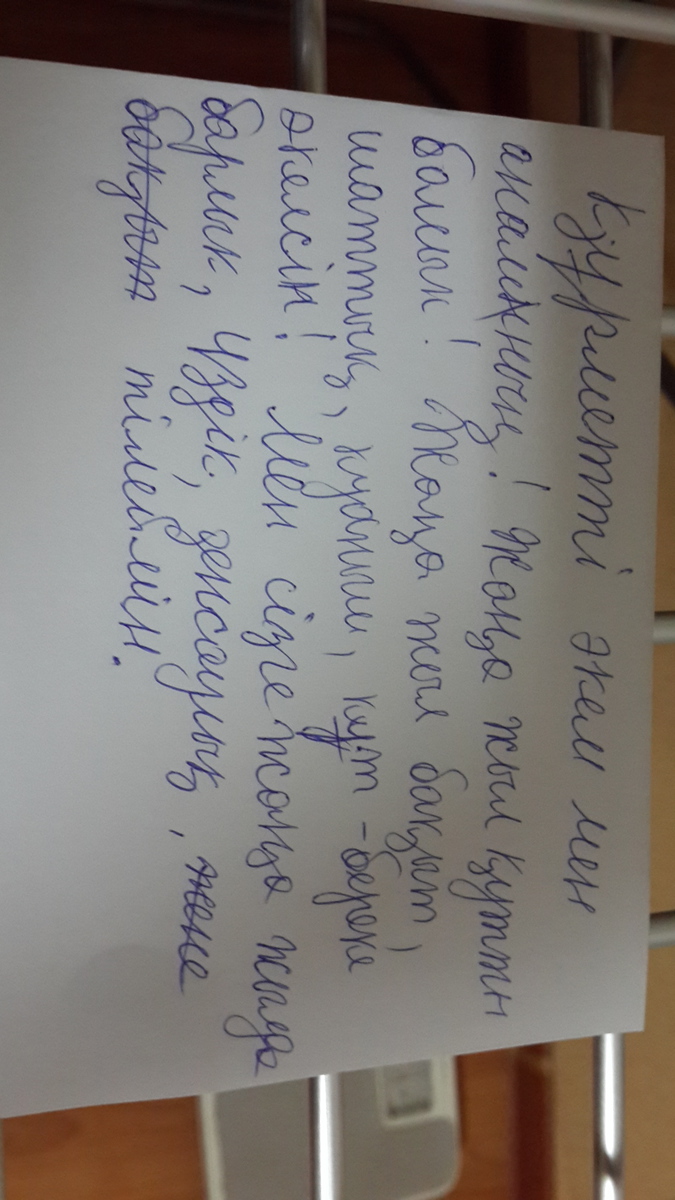 Құрметті әкем мен
анамнның! Жаңа жыл құтты
болсын! Жаңа жыл бақыт,
шаттық, қуаныш, құт-береке
әкелсін! Мен сізге жаңа жылда
барлық, Үздік, денсаулық, және
бақыт тілеймін.